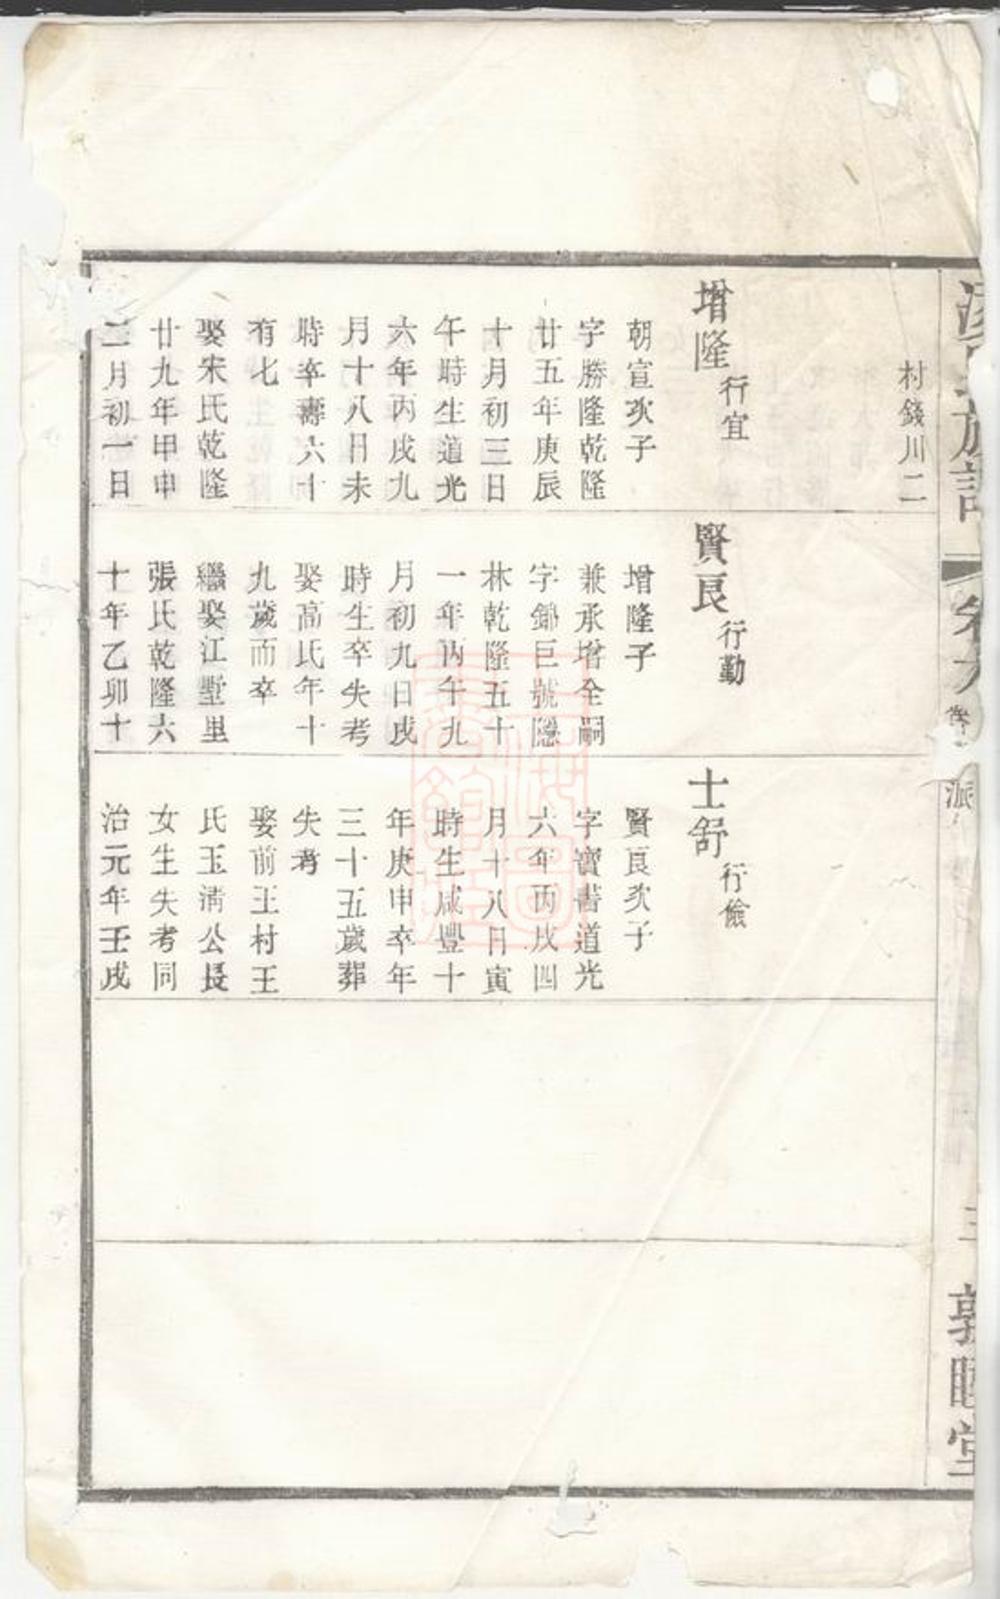 族譜
村錢川二
增隆行宜
朝宣次子
字勝隆乾隆
廿五年庚辰
十月初三日
午時生道光
六年丙戌九
月十八日未
時卒壽六十
有七
娶宋氏乾隆
廿九年甲申
二月初一日
賢良行勤
增隆子
兼承增全嗣
字錦巨號隱
林乾隆五十
一年丙午九
月初九日戌
時生卒失考
娶高氏年十
九歲而卒
繼娶江墅里
張氏乾隆六
十年乙卯十
士舒行儉
賢良次子
字寶書道光
六年丙戌四
月十八日寅
時生咸豐十
年庚申卒年
三十五歲葬
失考
娶前王村王
氏玉淸公長
女生失考同
治元年壬戌
派
三
敦睦堂